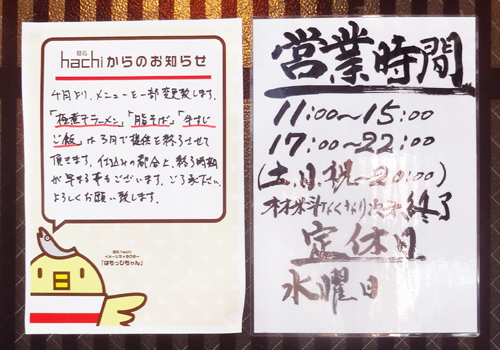 麺処
hachiからのお知らせ
4月より、メニューを一部変更致します。
「極煮干ラーメン」「脂そば」「牛すじ
ご飯」は3月で提供を終了させて
頂きます。仕込みの都合上、終了時期
が早まる事もございます。ご了承下さい。
よろしくお願い致します。
麺処 hachi
イメージキャラクター
「はちっぴちゃん」
営業時間
11:00〜15:00
17:00〜22:00
(土.日.祝〜20:00)
材料なくなり次第終了
定休日
水曜日